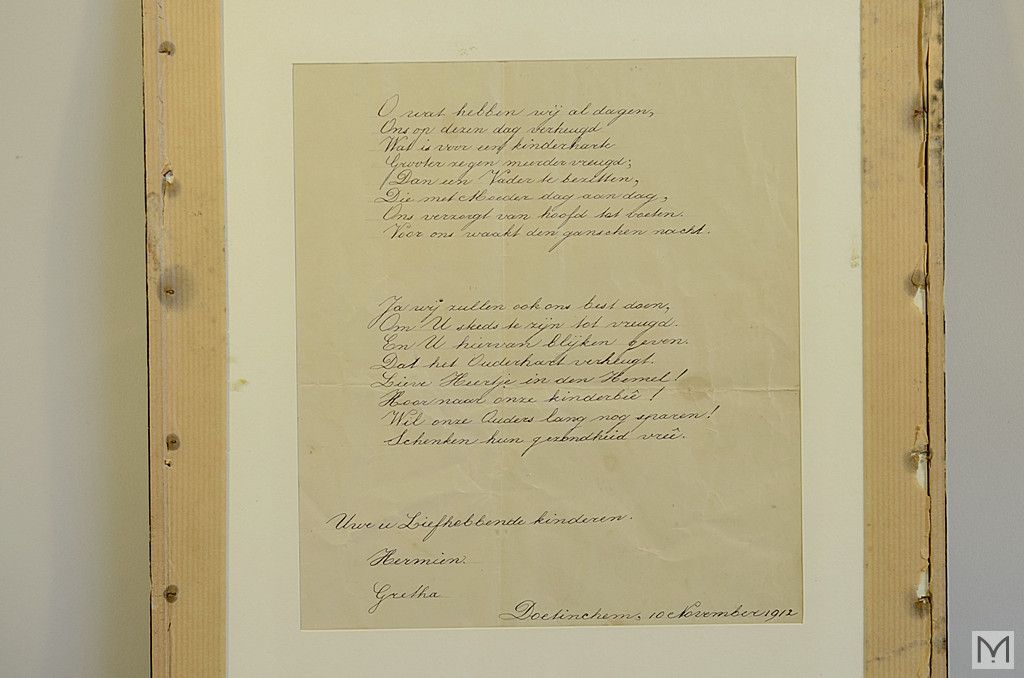 O wat hebben wij al dagen,
Ons op dezen dag verheugd
Wat is voor een kinderharte
Grooter zegen meerder vreugd;
Dan een Vader te bezitten,
Die met Moeder dag aan dag,
Ons verzorgt van hoofd tot voeten.
Voor ons waakt den ganschen nacht.
Ja wij zullen ook ons best doen,
Om U steeds te zijn tot vreugd.
En U hiervan blijken geven.
Dat het Ouderhart verheugt.
Lieve Heertje in den Hemel!
Hoor naar onze kinderbêe!
Wil onze Ouders lang nog sparen!
Schenken hun gezondheid vreê.
Uwe u Liefhebbende kinderen.
Hermien.
Gretha
Doetinchem, 10 November 1912
M